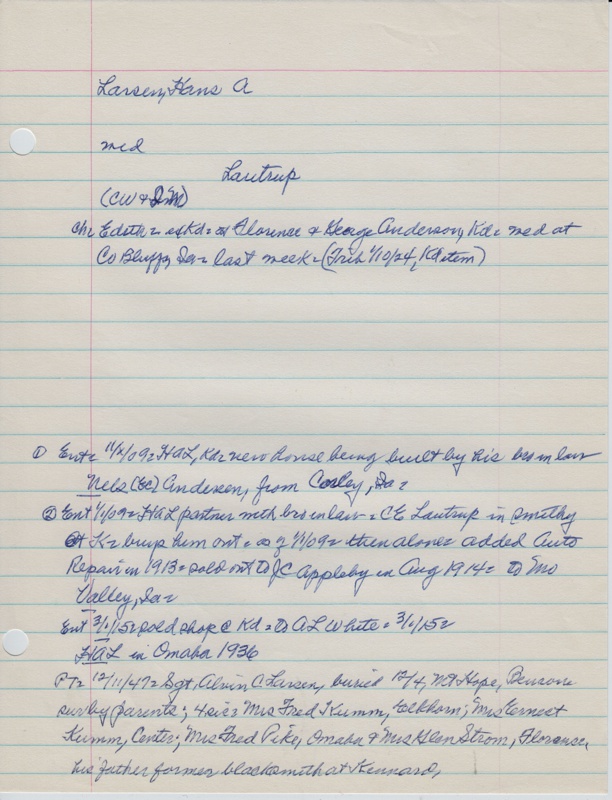 Larsen, Hans A
med
Lautrup
(CW & )
ch: Edith = of Kd = & Florence & George Anderson, Kd = med at
Co Bluffs, Ia = last week = (Trib 1/10/24, Kd item)
① Ent = 11/ /09 = HAL, Kd = new house being built by his bro in law
Nels (EC) Andersen, from Corley, Ia =
② Ent 1/1/09 = HAL partner with bro in law = CE Lautrup in smithy
at K = buys him out = as of 1/1/09 = then alone = added Auto
Repair in 1913 = sold out to JC Appleby in Aug 1914 = to Mo
Valley, Ia =
Ent 3/1/15 = sold shop @ Kd = to AL White = 3/1/15 =
HAL in Omaha 1936
PT = 12/11/47 = Sgt, Alvin C. Larsen, buried 12/4, Mt Hope, Benson
surv by parents; 4 sis = Mrs Fred Kumm, Elkhorn; Mrs Ernest
Kumm, Center; Mrs Fred Pike, Omaha & Mrs Glen Strom, Florence,
his father former blacksmith at Kennard,